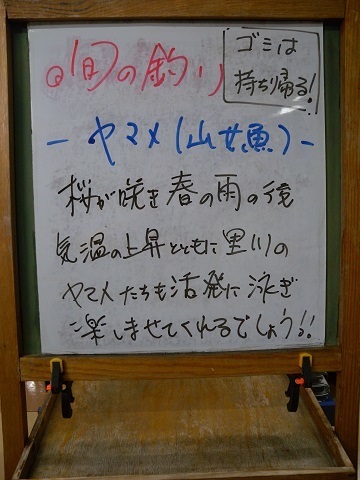 旬の釣り
ゴミは
持ち帰る!
-ヤマメ(山女魚)-
桜が咲き春の雨の後
気温の上昇とともに里川の
ヤマメたちも活発に泳ぎ
楽しませてくれるでしょう!!